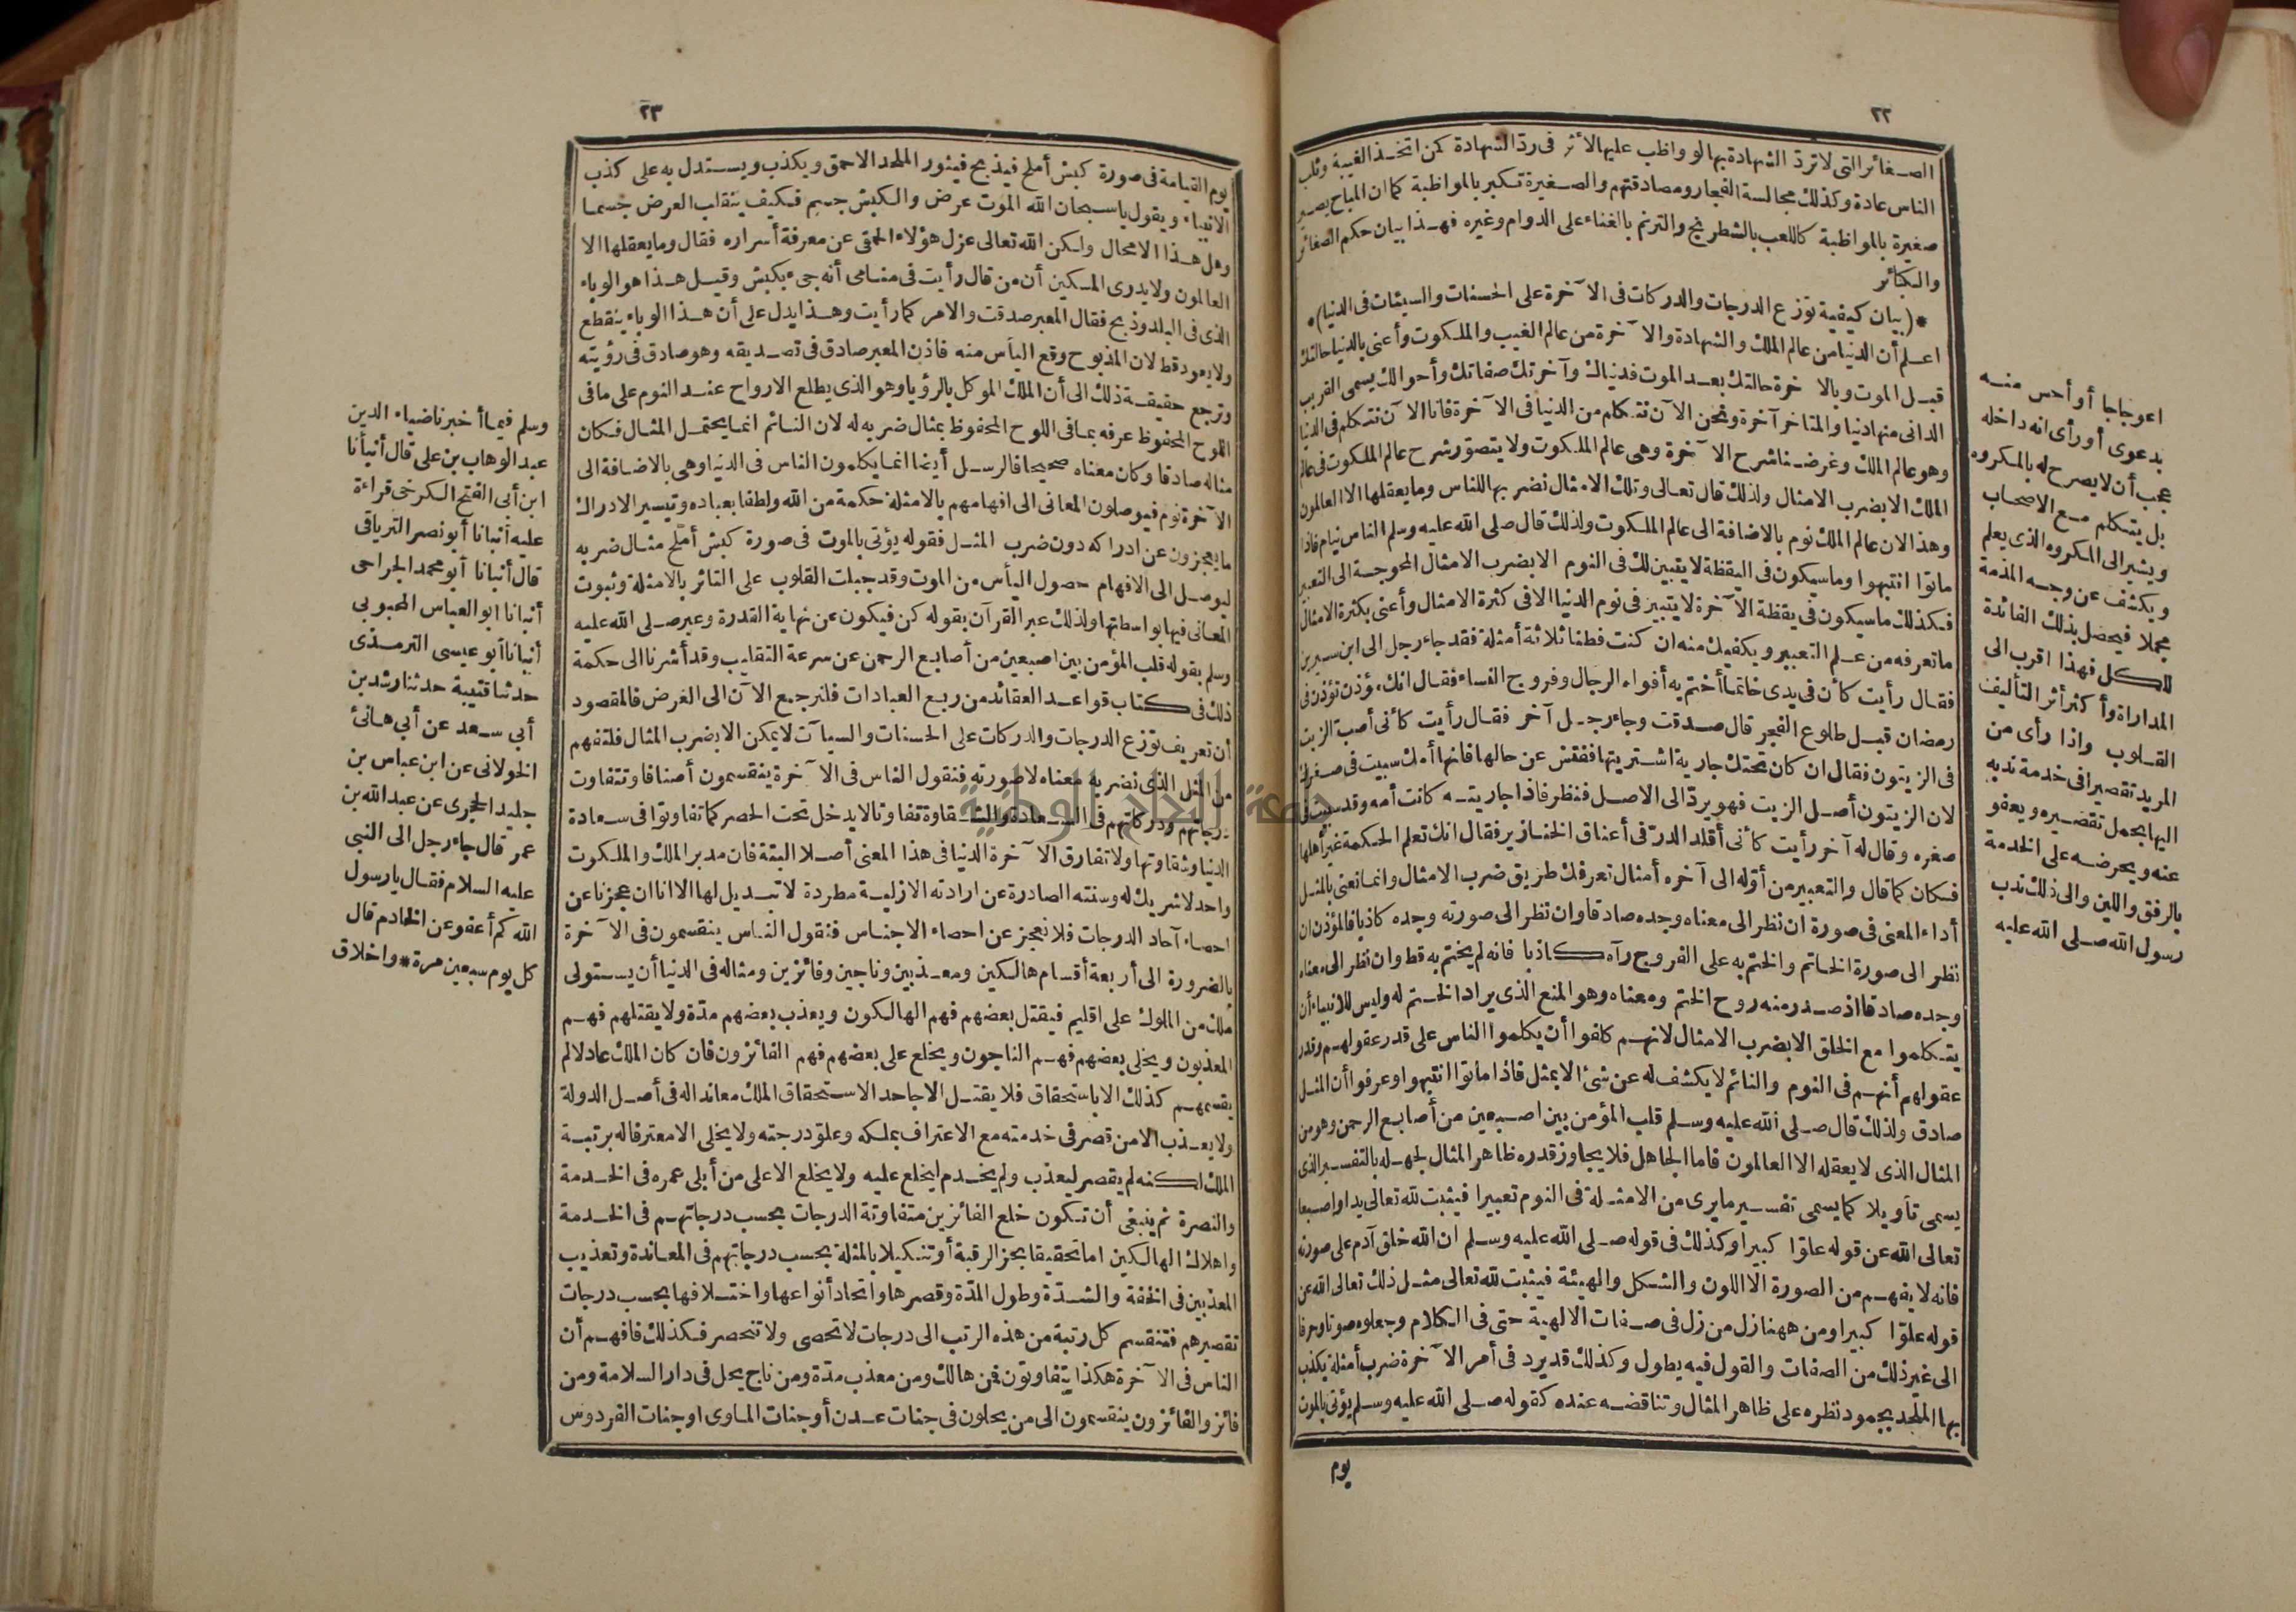 ٢٢
الصغائر التى لا تردّ الشهادة بها لو واظب عليها لأثر فى ردّ الشهادة كمن اتخذ الغيبة وثلب
الناس عادة وكذلك مجالسة الفجار ومصادقتهم والصغيرة تكبر بالمواظبة كما ان المباح يصير
صغيرة بالمواظبة كاللعب بالشطرنج والترنم بالغناء على الدوام وغيره فهذا بيان حكم الصغائر
والكبائر
*(بيان كيفية توزع الدرجات والدركات فى الآخرة على الحسنات والسيئات فى الدنيا)*
اعلم أن الدنيا من عالم الملك والشهادة والآخرة من عالم الغيب والملكوت وأعنى بالدنيا حالتك
قبل الموت وبالآخرة حالتك بعد الموت فدنياك وآخرتك صفاتك وأحوالك يسمى القريب
الدانى منها دنيا والمتاخر آخرة ونحن الآن نتكلم من الدنيا فى الآخرة فانا الآن نتكلم فى الدنيا
وهو عالم الملك وغرضنا شرح الآخرة وهى عالم الملكوت ولا يتصوّر شرح عالم الملكوت فى عالم
الملك الا بضرب الامثال ولذلك قال تعالى وتلك الامثال نضربها للناس وما يعقلها الا العالمون
وهذا لان عالم الملك نوم بالاضافة الى عالم الملكوت ولذلك قال صلى الله عليه وسلم الناس نيام فاذا
ماتوا انتبهوا وما سيكون فى اليقظة لا يتبين لك فى النوم الا بضرب الامثال المحوجة الى التعبير
فكذلك ما سيكون فى يقظة الآخرة لا يتبين فى نوم الدنيا الا فى كثرة الامثال وأعنى بكثرة الامثال
ما تعرفه من علم التعبير ويكفيك منه ان كنت فطنا ثلاثة أمثلة فقد جاء رجل الى ابن سيرين
فقال رأيت كأن فى يدى خاتما أختم به أفواه الرجال وفروج النساء فقال انك مؤذن تؤذن فى
رمضان قبل طلوع الفجر قال صدقت وجاء رجل آخر فقال رأيت كأنى أصبّ الزيت
فى الزيتون فقال ان كان تحتك جارية اشتريتها ففتش عن حالها فانها أمك سبيت فى صغرك
لان الزيتون أصل الزيت فهو يردّ الى الاصل فنظر فاذا جاريته كانت أمه وقد سبيت فى
صغره وقال له آخر رأيت كأنى أقلد الدرّ فى أعناق الخنازير فقال انك تعلم الحكمة غير أهلها
فكان كما قال والتعبير من أوّله الى آخره أمثال تعرفك طريق ضرب الامثال وانما نعنى بالمثل
أداء المعنى فى صورة ان نظر الى معناه وجده صادقا وان نظر الى صورته وجده كاذبا فالمؤذن ان
نظر الى صورة الخاتم والختم به على الفروج رآه كاذبا فانه لم يختم به قط وان نظر الى معناه
وجده صادقا اذ صدر منه روح الختم ومعناه وهو المنع الذى يراد الختم له وليس للانبياء أن
يتكلموا مع الخلق الا بضرب الامثال لانهم كلفوا أن يكلموا الناس على قدر عقولهم وقدر
عقولهم أنهم فى النوم والنائم لا يكشف له عن شئ الا بمثل فاذا ماتوا انتبهوا وعرفوا أن المثل
صادق ولذلك قال صلى الله عليه وسلم قلب المؤمن بين اصبعين من أصابع الرحمن وهو من
المثال الذى لا يعقله الا العالمون فاما الجاهل فلا يجاوز قدره ظاهر المثال لجهله بالتفسير الذى
يسمى تأويلا كما يسمى تفسير ما يرى من الامثلة فى النوم تعبيرا فيثبت لله تعالى يدا واصبعا
تعالى الله عن قوله علوّا كبيرا وكذلك فى قوله صلى الله عليه وسلم ان الله خلق آدم على صورته
فانه لا يفهم من الصورة الا اللون والشكل والهيئة فيثبت لله تعالى مثل ذلك تعالى الله عن
قوله علوّا كبيرا ومن ههنا زل من زل فى صفات الالهية حتى فى الكلام وجعلوه صوتا وحرفا
الى غير ذلك من الصفات والقول فيه يطول وكذلك قد يرد فى أمر الآخرة ضرب أمثلة يكذب
بها الملحد بجمود نظره على ظاهر المثال وتناقضه عنده كقوله صلى الله عليه وسلم يؤتى بالموت
يوم
اعوجاجا أو أحس منه
بدعوى أو رأى انه داخله
عجب أن لا يصرح له بالمكروه
بل يتكلم مع الاصحاب
ويشير الى المكروه الذى يعلم
ويكشف عن وجه المذمة
مجملا فيحصل بذلك الفائدة
للكل فهذا اقرب الى
المداراة وأكثر أثر التأليف
القلوب واذا رأى من
المريد تقصيرا فى خدمة ندبه
اليها يحمل تقصيره ويعفو
عنه ويحرضه على الخدمة
بالرفق واللين والى ذلك ندب
رسول الله صلى الله عليه
٢٣
يوم القيامة فى صورة كبش أملح فيذبح فيثور الملحد الاحمق ويكذب ويستدل به على كذب
الانبياء ويقول يا سبحان الله الموت عرض والكبش جسم فكيف ينقلب العرض جسما
وهل هذا الا محال ولكن الله تعالى عزل هؤلاء الحمقى عن معرفة أسراره فقال وما يعقلها الا
العالمون ولا يدرى المسكين أن من قال رأيت فى منامى أنه جىء بكبش وقيل هذا هو الوباء
الذى فى البلد وذبح فقال المعبر صدقت والامر كما رأيت وهذا يدل على أن هذا الوباء ينقطع
ولا يعود قط لان المذبوح وقع اليأس منه فاذن المعبر صادق فى تصديقه وهو صادق فى رؤيته
وترجع حقيقة ذلك الى أن الملك الموكل بالرؤيا وهو الذى يطلع الارواح عند النوم على ما فى
اللوح المحفوظ عرفه بما فى اللوح المحفوظ بمثال ضربه له لان النائم انما يحتمل المثال فكان
مثاله صادقا وكان معناه صحيحا فالرسل أيضا انما يكلمون الناس فى الدنيا وهى بالاضافة الى
الآخرة نوم فيوصلون المعانى الى افهامهم بالامثلة حكمة من الله ولطفا بعباده وتيسير الادراك
ما يعجزون عن ادراكه دون ضرب المثل فقوله يؤتى بالموت فى صورة كبش أملح مثال ضربه
ليوصل الى الافهام حصول اليأس من الموت وقد جبلت القلوب على التاثر بالامثلة وثبوت
المعانى فيها بواسطتها ولذلك عبر القرآن بقوله كن فيكون عن نهاية القدرة وعبر صلى الله عليه
وسلم بقوله قلب المؤمن بين اصبعين من أصابع الرحمن عن سرعة التقليب وقد أشرنا الى حكمة
ذلك فى كتاب قواعد العقائد من ربع العبادات فلنرجع الآن الى الغرض فالمقصود
أن تعريف توزع الدرجات والدركات على الحسنات والسيآت لا يمكن الا بضرب المثال فلتفهم
من المثل الذى نضربه معناه لا صورته فنقول الناس فى الآخرة ينقسمون أصنافا وتتفاوت
درجاتهم ودركاتهم فى السعادة والشقاوة تفاوتا لا يدخل تحت الحصر كما تفاوتوا فى سعادة
الدنيا وشقاوتها ولا تفارق الآخرة الدنيا فى هذا المعنى أصلا البتة فان مدبر الملك والملكوت
واحد لا شريك له وسنته الصادرة عن ارادته الازلية مطردة لا تبديل لها الا انا ان عجزنا عن
احصاء آحاد الدرجات فلا نعجز عن احصاء الاجناس فنقول الناس ينقسمون فى الآخرة
بالضرورة الى أربعة أقسام هالكين ومعذبين وناجين وفائزين ومثاله فى الدنيا أن يستولى
ملك من الملوك على اقليم فيقتل بعضهم فهم الهالكون ويعذب بعضهم مدّة ولا يقتلهم فهم
المعذبون ويخلى بعضهم فهم الناجون ويخلع على بعضهم فهم الفائزون فان كان الملك عادلا لم
يقسمهم كذلك الا باستحقاق فلا يقتل الا جاحد الاستحقاق الملك معاندا له فى أصل الدولة
ولا يعذب الا من قصر فى خدمته مع الاعتراف بملكه وعلوّ درجته ولا يخلى الا معترفا له برتبة
الملك لكنه لم يقصر ليعذب ولم يخدم ليخلع عليه ولا يخلع الا على من أبلى عمره فى الخدمة
والنصرة ثم ينبغى أن تكون خلع الفائزين متفاوتة الدرجات بحسب درجاتهم فى الخدمة
واهلاك الهالكين اما تحقيقا بحز الرقبة أو تنكيلا بالمثلة بحسب درجاتهم فى المعاندة وتعذيب
المعذبين فى الخفة والشدّة وطول المدّة وقصرها واتحاد أنواعها واختلافها بحسب درجات
تقصيرهم فتنقسم كل رتبة من هذه الرتب الى درجات لا تحصى ولا تنحصر فكذلك فافهم أن
الناس فى الآخرة هكذا يتفاوتون فمن هالك ومن معذب مدّة ومن ناج يحل فى دار السلامة ومن
فائز والفائزون ينقسمون الى من يحلون فى جنات عدن أو جنات الماوى او جنات الفردوس
وسلم فيما أخبرنا ضياء الدين
عبد الوهاب بن على قال أنبأنا
ابن أبى الفتح الكرخى قراءة
عليه أنبانا أبو نصر الترياقى
قال أنبانا أبو محمد الجراحى
أنبانا ابو العباس المحبوبى
أنبانا أبو عيسى الترمذى
حدثنا قتيبة حدثنا رشدين
أبى سعد عن أبى هانئ
الخولانى عن ابن عباس بن
جليد الحجرى عن عبد الله بن
عمر قال جاء رجل الى النبى
عليه السلام فقال يا رسول
الله كم أعفو عن الخادم قال
كل يوم سبعين مرة * واخلاق
جامعة النجاح الوطنية